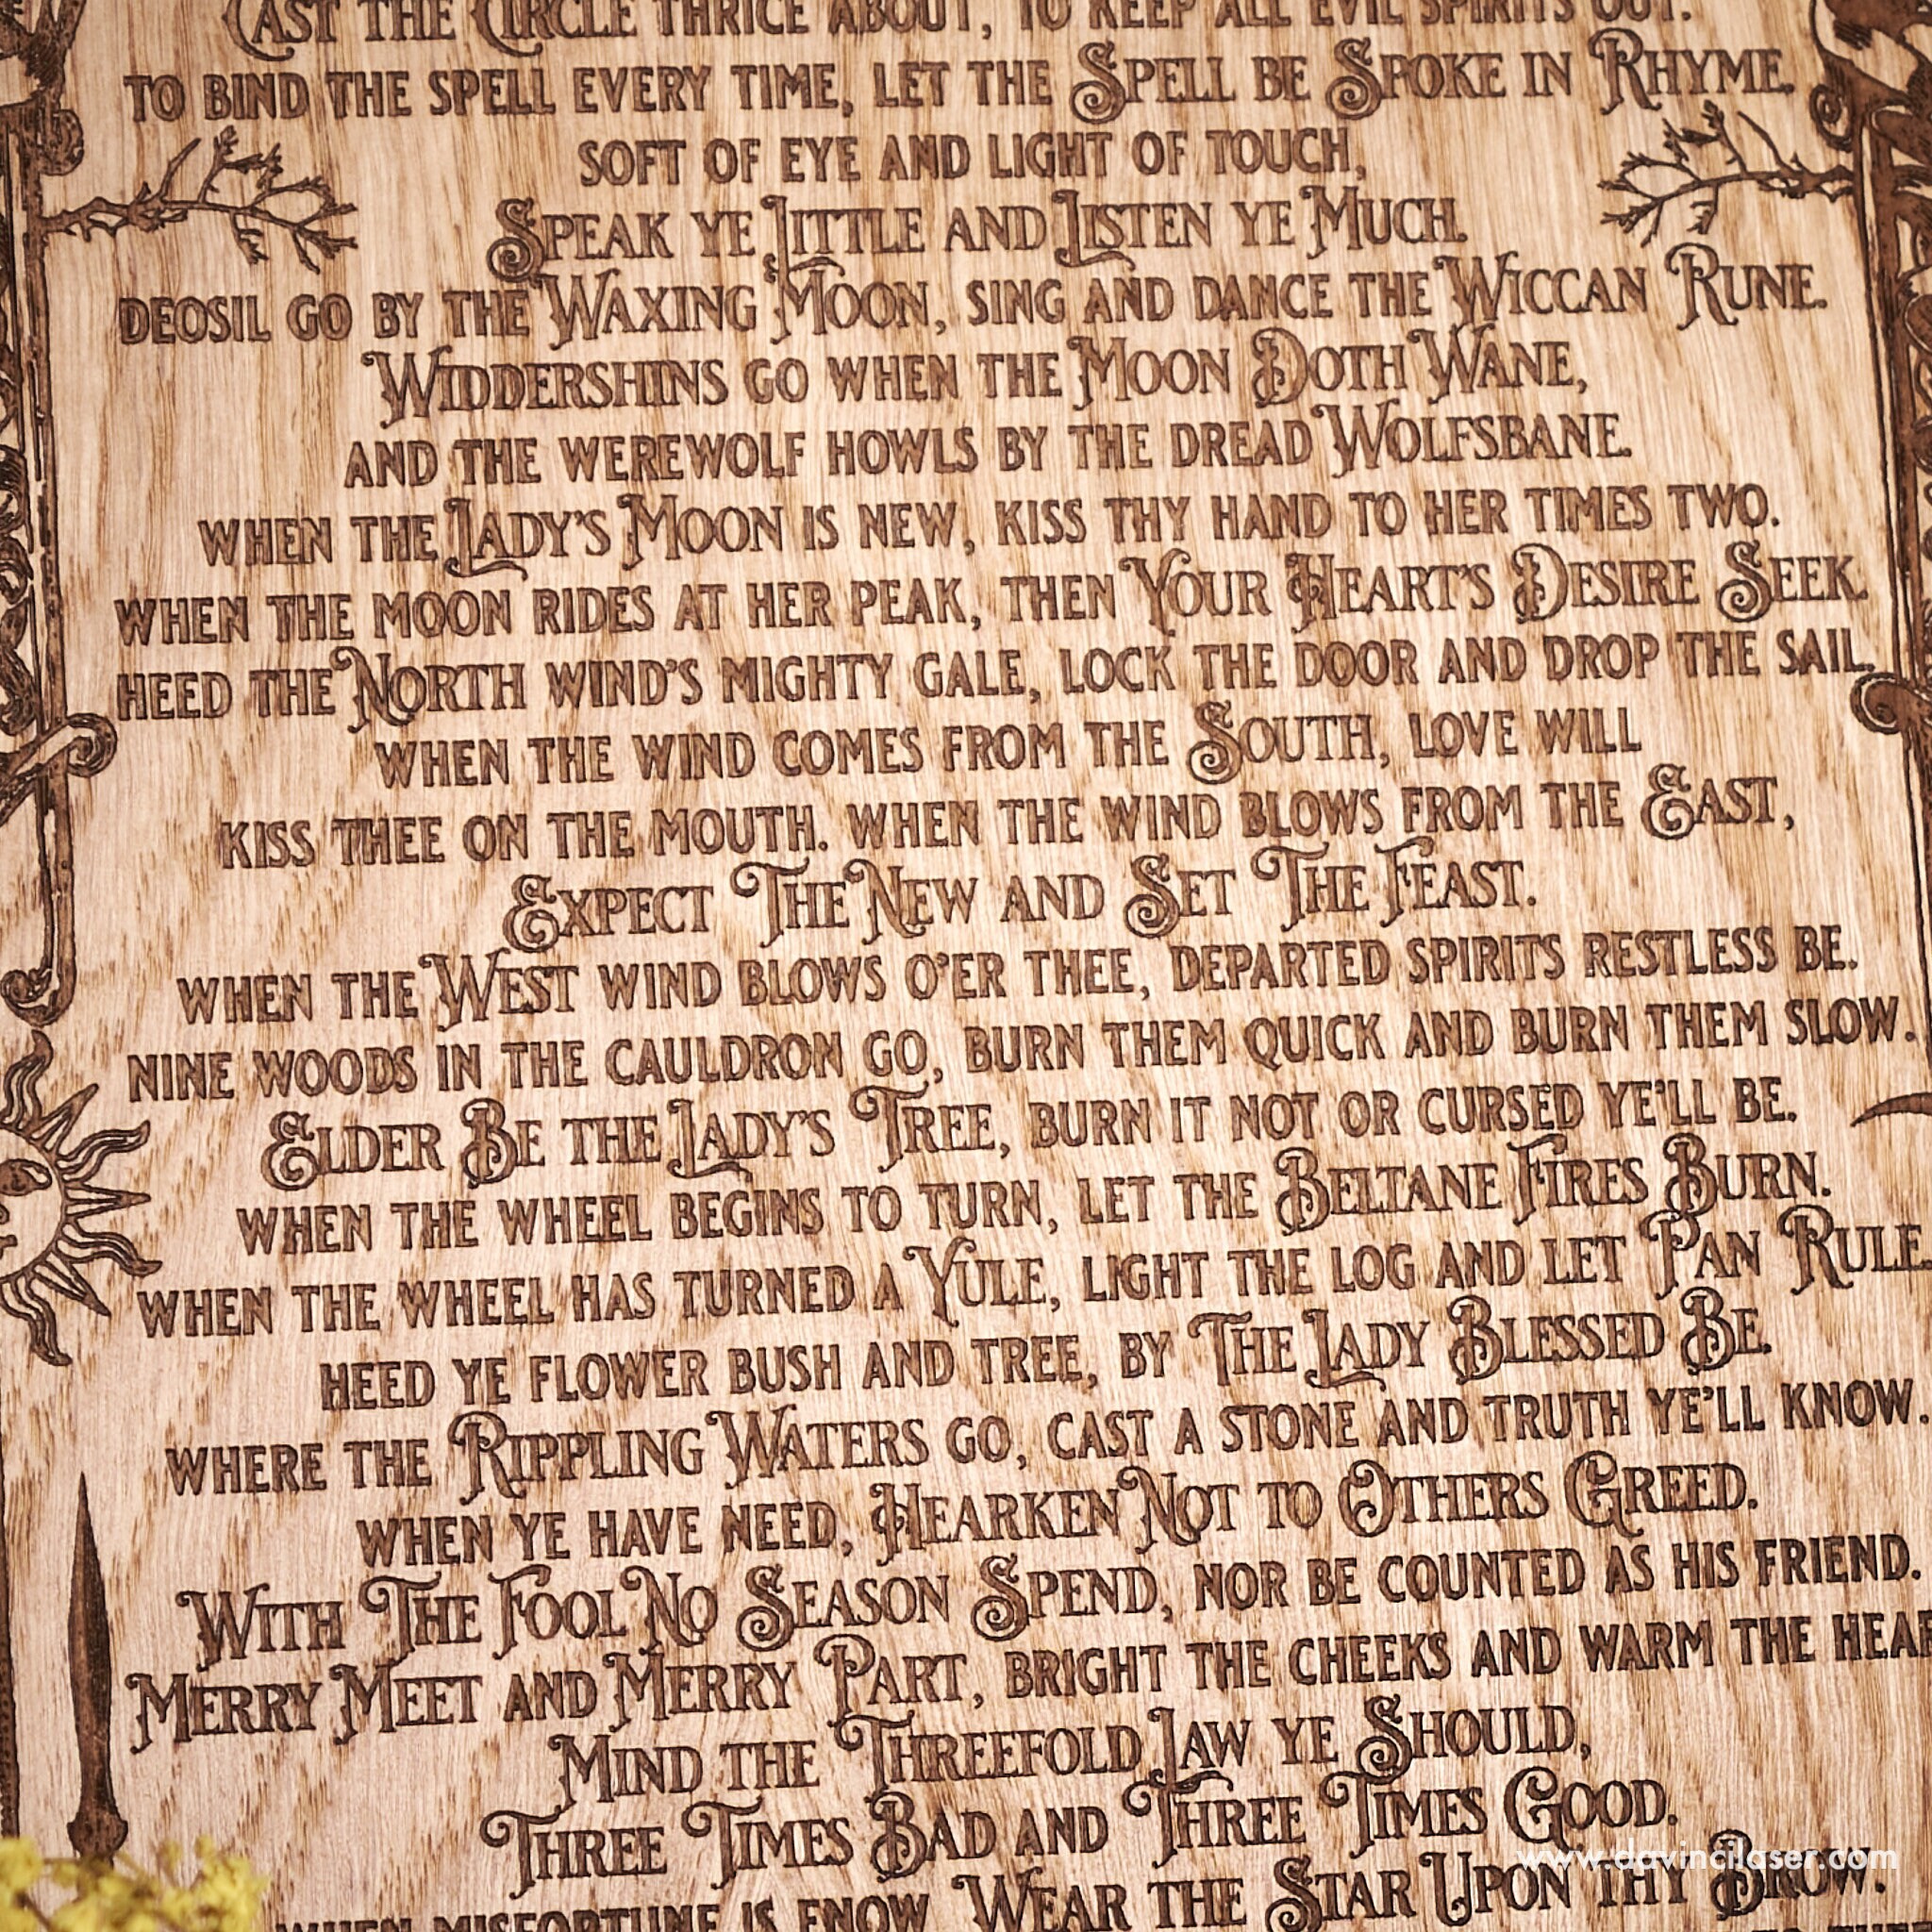 Cast the Circle thrice about, to keep all evil spirits out.
to bind the spell every time, let the Spell be Spoke in Rhyme.
soft of eye and light of touch,
Speak ye Little and Listen ye Much.
deosil go by the Waxing Moon, sing and dance the Wiccan Rune.
Widdershins go when the Moon Doth Wane,
and the werewolf howls by the dread Wolfsbane.
when the Lady's Moon is new, kiss thy hand to her times two.
when the moon rides at her peak, then Your Heart's Desire Seek.
heed the North wind's mighty gale, lock the door and drop the sail.
when the wind comes from the South, love will
kiss thee on the mouth. when the wind blows from the East,
Expect The New and Set The Feast.
when the West wind blows o'er thee, departed spirits restless be.
nine woods in the cauldron go, burn them quick and burn them slow.
Elder Be the Lady's Tree, burn it not or cursed ye'll be.
when the wheel begins to turn, let the Beltane Fires Burn.
when the wheel has turned a Yule, light the log and let Pan Rule.
heed ye flower bush and tree, by The Lady Blessed Be.
where the Rippling Waters go, cast a stone and truth ye'll know.
when ye have need, Hearken Not to Others Greed.
With The Fool No Season Spend, nor be counted as his friend.
Merry Meet and Merry Part, bright the cheeks and warm the hear
Mind the Threefold Law ye Should,
Three Times Bad and Three Times Good.
www.davincilaser.com
when misfortune is enow, Wear the Star Upon thy Brow.